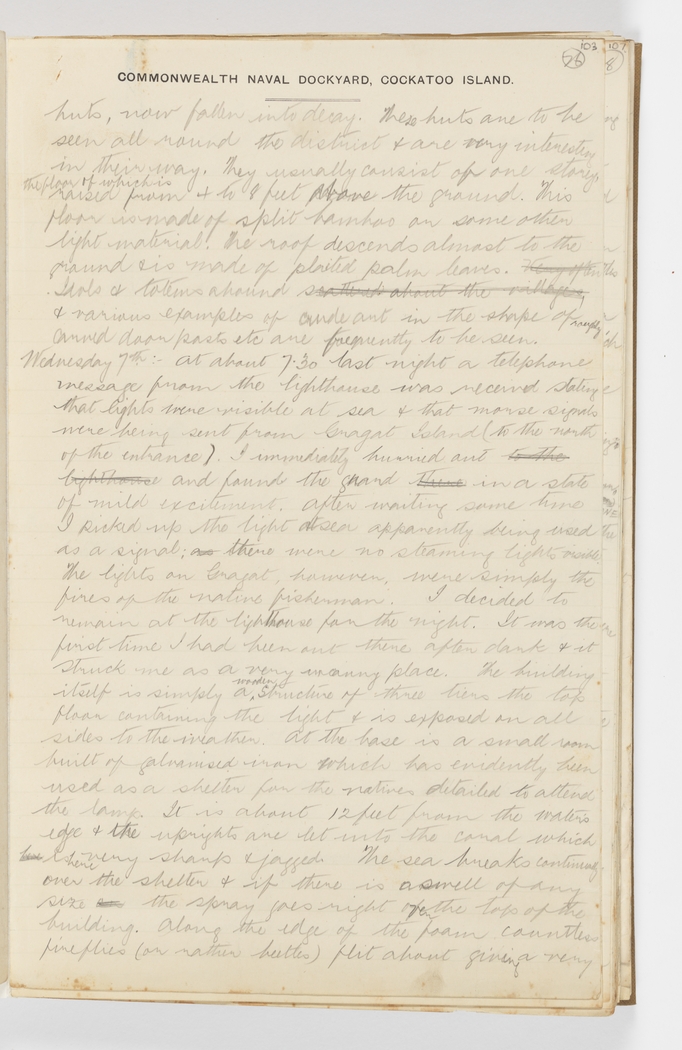 103 107
56 8
COMMONWEALTH NAVAL DOCKYARD, COCKATOO ISLAND.
huts, now fallen into decay. These huts are to be
seen all round the district & are very interesting
in their way. They usually consist of one storey
the floor of which is
raised from 4 to 8 feet above the ground. This
floor is made of split bamboo or some other
light material. The roof descends almost to the
ground & is made of plaited palm leaves.
Idols & totems abound scattered about the villages,
& various examples of crude art in the shape of roughly
carved door posts etc are frequently to be seen.
Wednesday 7th :- At about 7.30 last night a telephone
message from the lighthouse was received stating
that lights were visible at sea & that morse signals
were being sent from Gragat Island (to the north
of the entrance). I immediately hurried out to the
lighthouse and found the guard there in a state
of mild excitement. After waiting some time
I picked up the light at sea apparently being used
as a signal; as there were no steaming lights visible.
The lights on Gragat, however, were simply the
fires of the native fisherman. I decided to
remain at the lighthouse for the night. It was the
first time I had been out there after dark & it
struck me as a very uncanny place. The building
itself is simply a wooden structure of three tiers the top
floor containing the light & is exposed on all
sides to the weather. At the base is a small room
built of galvanised iron which has evidently been
used as a shelter for the natives detailed to attend
the lamp. It is about 12 feet from the waters
edge & the uprights are let into the coral which
is here very sharp & jagged. The sea breaks continually
over the shelter & if there is a swell of any
size the spray goes right over the top of the
building. Along the edge of the foam countless
fireflies (or rather beetles) flit about giving a very